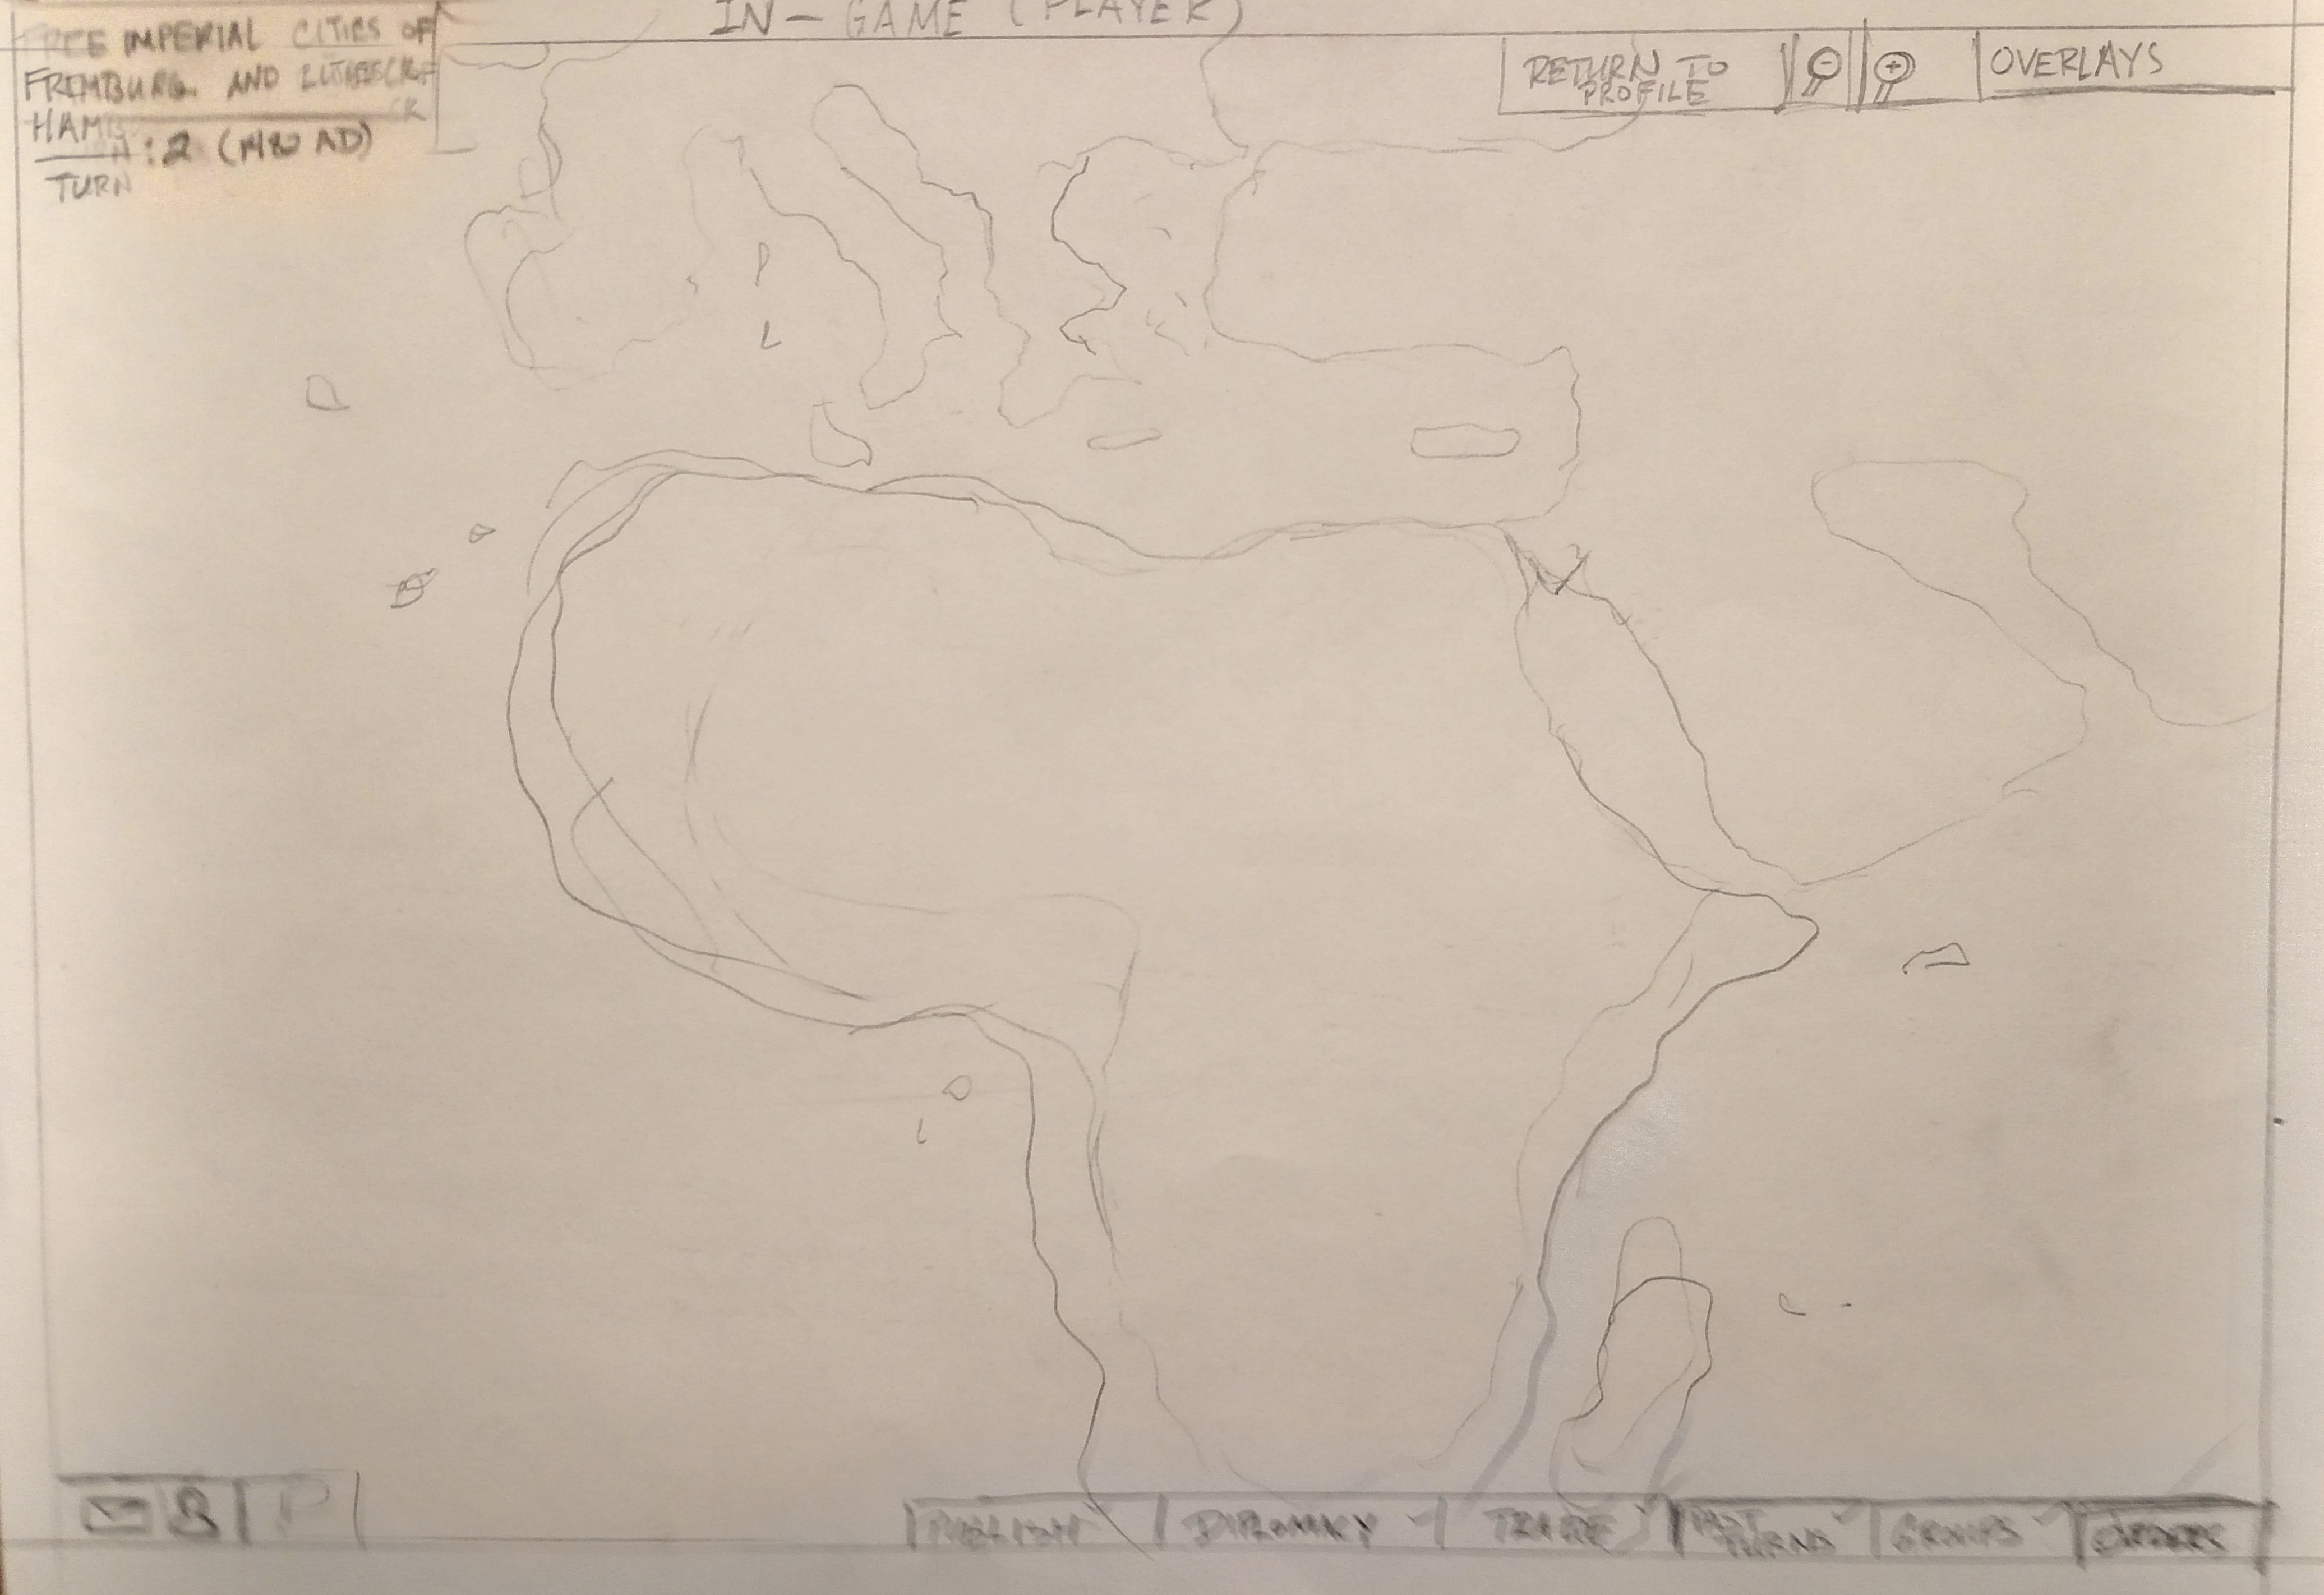 IN - GAME (PLAYER)
FREE IMPERIAL CITIES OF
AND
HAM
TURN : 2 (1480 AD)
RETURN TO
PROFILE
- +
OVERLAYS
PUBLISH
DIPLOMACY
TRADE
PAST
TURNS
GROUPS
ORDERS